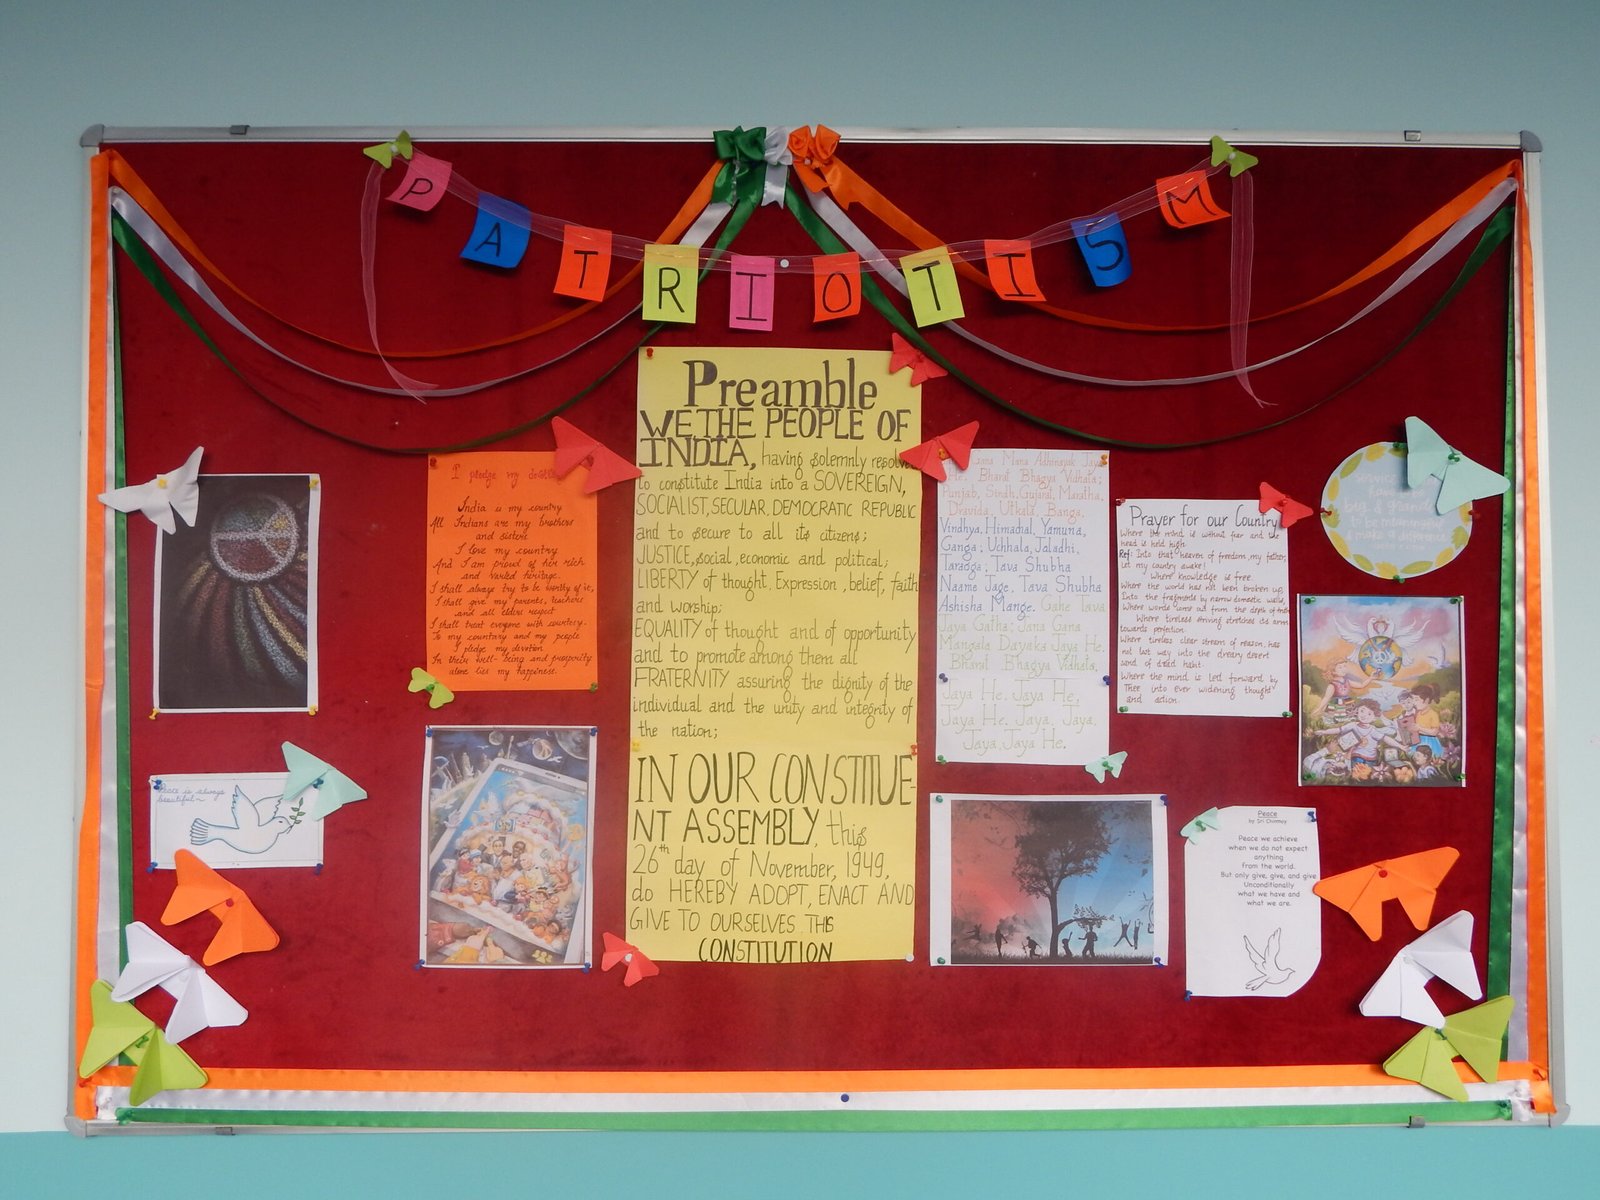 PATRIOTISM
Preamble
WE THE PEOPLE OF
INDIA, having solemnly resolved
to constitute India into a SOVEREIGN,
SOCIALIST, SECULAR, DEMOCRATIC REPUBLIC
and to secure to all its citizens;
JUSTICE, social, economic and political;
LIBERTY of thought, Expression, belief, faith
and worship;
EQUALITY of thought and of opportunity
and to promote among them all
FRATERNITY assuring the dignity of the
individual and the unity and integrity of
the nation;
IN OUR CONSTITUE-
NT ASSEMBLY, this
26th day of November, 1949,
do HEREBY ADOPT, ENACT AND
GIVE TO OURSELVES THIS
CONSTITUTION
I pledge my
India is my country
All Indians are my brothers
and sisters
I love my country
And I am proud of her rich
and varied heritage.
I shall always try to be worthy of it,
I shall give my parents, teachers
and all elders respect
I shall treat everyone with courtesy.
To my country and my people
I pledge my devotion
In their well-being and prosperity
alone lies my happiness.
Peace is always
beautiful
Gana Mana Adhinayak Jaya
He, Bharat Bhagya Vidhata;
Punjab, Sindh, Gujarat, Maratha,
Dravida, Utkala, Banga,
Vindhya, Himachal, Yamuna,
Ganga; Uchhala, Jaladhi,
Taranga; Tava Shubha
Naame Jage, Tava Shubha
Ashisha Mange. Gahe Tava
Jaya Gatha; Jana Gana
Mangala Dayaka Jaya He,
Bharat Bhagya Vidhata,
Jaya He, Jaya He,
Jaya He, Jaya, Jaya,
Jaya, Jaya He.
Prayer for our Country
Where the mind is without fear and the
head is held high
Ref: Into that heaven of freedom, my father,
let my country awake!
Where knowledge is free
Where the world has not been broken up,
Into the fragments by narrow domestic walls,
Where words come out from the depth of truth
Where tireless striving stretches its arm
towards perfection.
Where tireless clear stream of reason, has
not lost way into the dreary desert
sand of dead habit.
Where the mind is led forward by
Thee into ever widening thought
and action.
Service
have to be
big & grand
to be meaningful
& make a difference
Peace
by Sri Chinmoy
Peace we achieve
when we do not expect
anything
From the world.
But only give, give, and give
Unconditionally
what we have and
what we are.